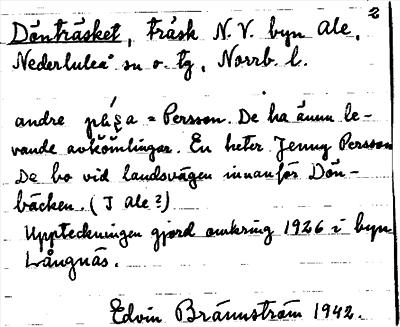 2
Dönträsket, träsk N.V. byn Ale,
Nederluleå sn o. tg, Norrb. l.
andre = Persson. De ha ännu le-
vande avkömlingar. En heter Jenny Persson
De bo vid landsvägen innanför Dön-
bäcken. (I Ale?)
Uppteckningen gjord omkring 1926 i byn
Långnäs.
Edvin Brännström 1942.